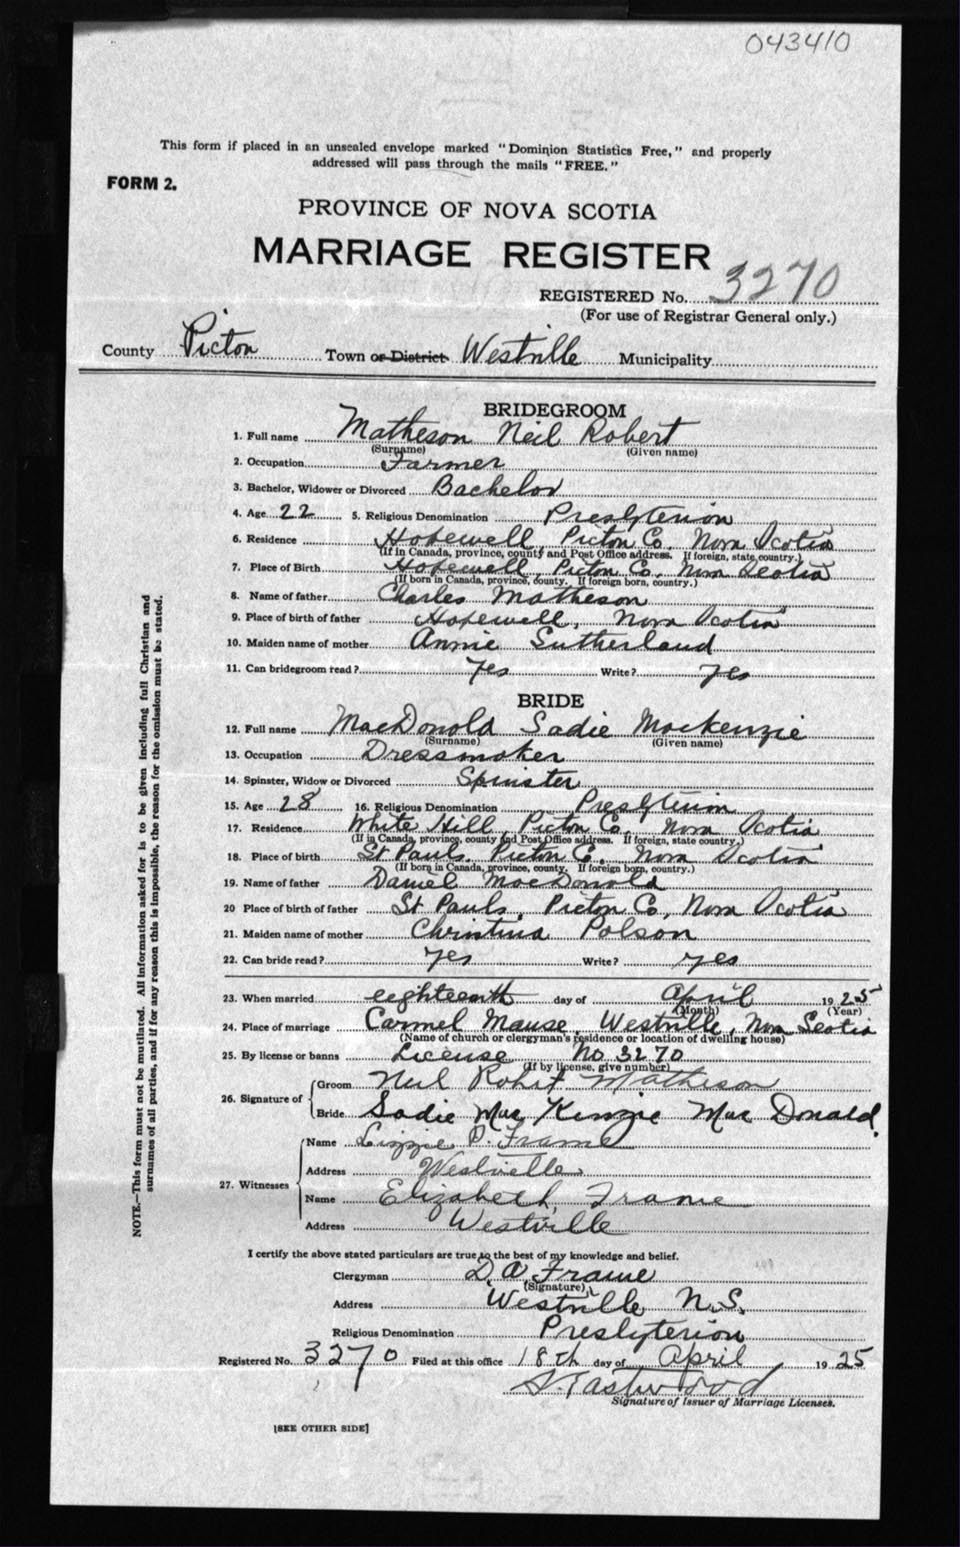 043410
This form if placed in an unsealed envelope marked "Dominion Statistics Free," and properly
addressed will pass through the mails "FREE."
FORM 2.
PROVINCE OF NOVA SCOTIA
MARRIAGE REGISTER
REGISTERED No. 3270
(For use of Registrar General only.)
County Picton Town or District Westville Municipality
BRIDEGROOM
1. Full name Matheson Neil Robert
(Surname) (Given name)
2. Occupation Farmer
3. Bachelor, Widower or Divorced Bachelor
4. Age 22 5. Religious Denomination Presbyterion
6. Residence Hopewell, Picton Co, Nova Scotia
(If in Canada, province, county and Post Office address. If foreign, state, country.)
7. Place of Birth Hopewell, Picton Co, Nova Scotia
(If born in Canada, province, county. If foreign born, country.)
8. Name of father Charles Matheson
9. Place of birth of father Hopewell, Nova Scotia
10. Maiden name of mother Annie Sutherland
11. Can bridegroom read? yes Write? yes
BRIDE
12. Full name MacDonald Sadie Mackenzie
(Surname) (Given name)
13. Occupation Dressmaker
14. Spinster, Widow or Divorced Spinster
15. Age 28 16. Religious Denomination Presbyterion
17. Residence White Hill, Picton Co, Nova Scotia
(If in Canada, province, county and Post Office address. If foreign, state country.)
18. Place of birth St Pauls. Picton Co. Nova Scotia
(If born in Canada, province, county. If foreign born, country.)
19. Name of father Daniel MacDonald
20 Place of birth of father St Pauls, Picton Co, Nova Scotia
21. Maiden name of mother Christina Polson
22. Can bride read? yes Write? yes
23. When married eighteenth day of April 1925
(Month) (Year)
24. Place of marriage Carmel Manse, Westville, Nova Scotia
(Name of church or clergyman's residence or location of dwelling house)
25. By license or banns License No 3270
(If by license, give number)
26. Signature of Groom Neil Robert Matheson
Bride Sadie Mac Kenzie Mac Donald.
27. Witnesses Name Lizzie P. Frame
Address Westville
Name Elizabeth Frame
Address Westville
I certify the above stated particulars are true to the best of my knowledge and belief.
Clergyman D. A. Frame
(Signature)
Address Westville N.S.
Religious Denomination Presbyterion
Registered No. 3270 Filed at this office 18th day of April 1925
S. Eastwood
Signature of Issuer of Marriage Licenses.
[SEE OTHER SIDE]
NOTE.—This form must not be mutilated. All information asked for is to be given including full Christian and
surnames of all parties, and if for any reason this is impossible, the reason for the omission must be stated.